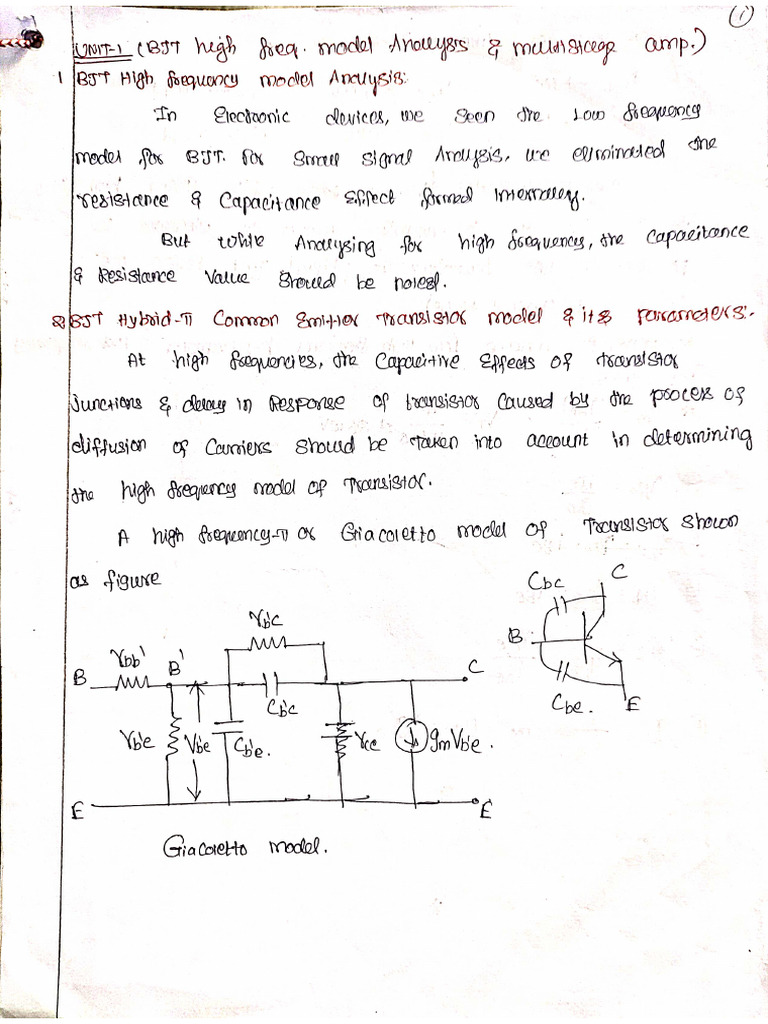 1
UNIT-1 (BJT high freq. model Analysis & multistage amp.)
1 BJT High frequency model Analysis:
In Electronic devices, we seen the Low frequency
model for BJT. for small signal Analysis, we eliminated the
resistance & Capacitance Effect formed Internally.
But While Analysing for high frequency, the Capacitance
& Resistance Value should be noted.
2 BJT Hybrid-π Common Emitter Transistor model & its Parameters:-
At high frequencies, the Capacitive Effects of transistor
junctions & delay in Response of transistor Caused by the process of
diffusion of Carriers should be Taken into account in determining
the high frequency model of Transistor.
A high frequency-π or Giacoletto model of Transistor shown
as figure
Cbc C
B
Cbe. E
rb'c
rbb' B'
B C
Cb'c
rb'e Vb'e Cb'e. rce gmVb'e.
E E
Giacoletto model.